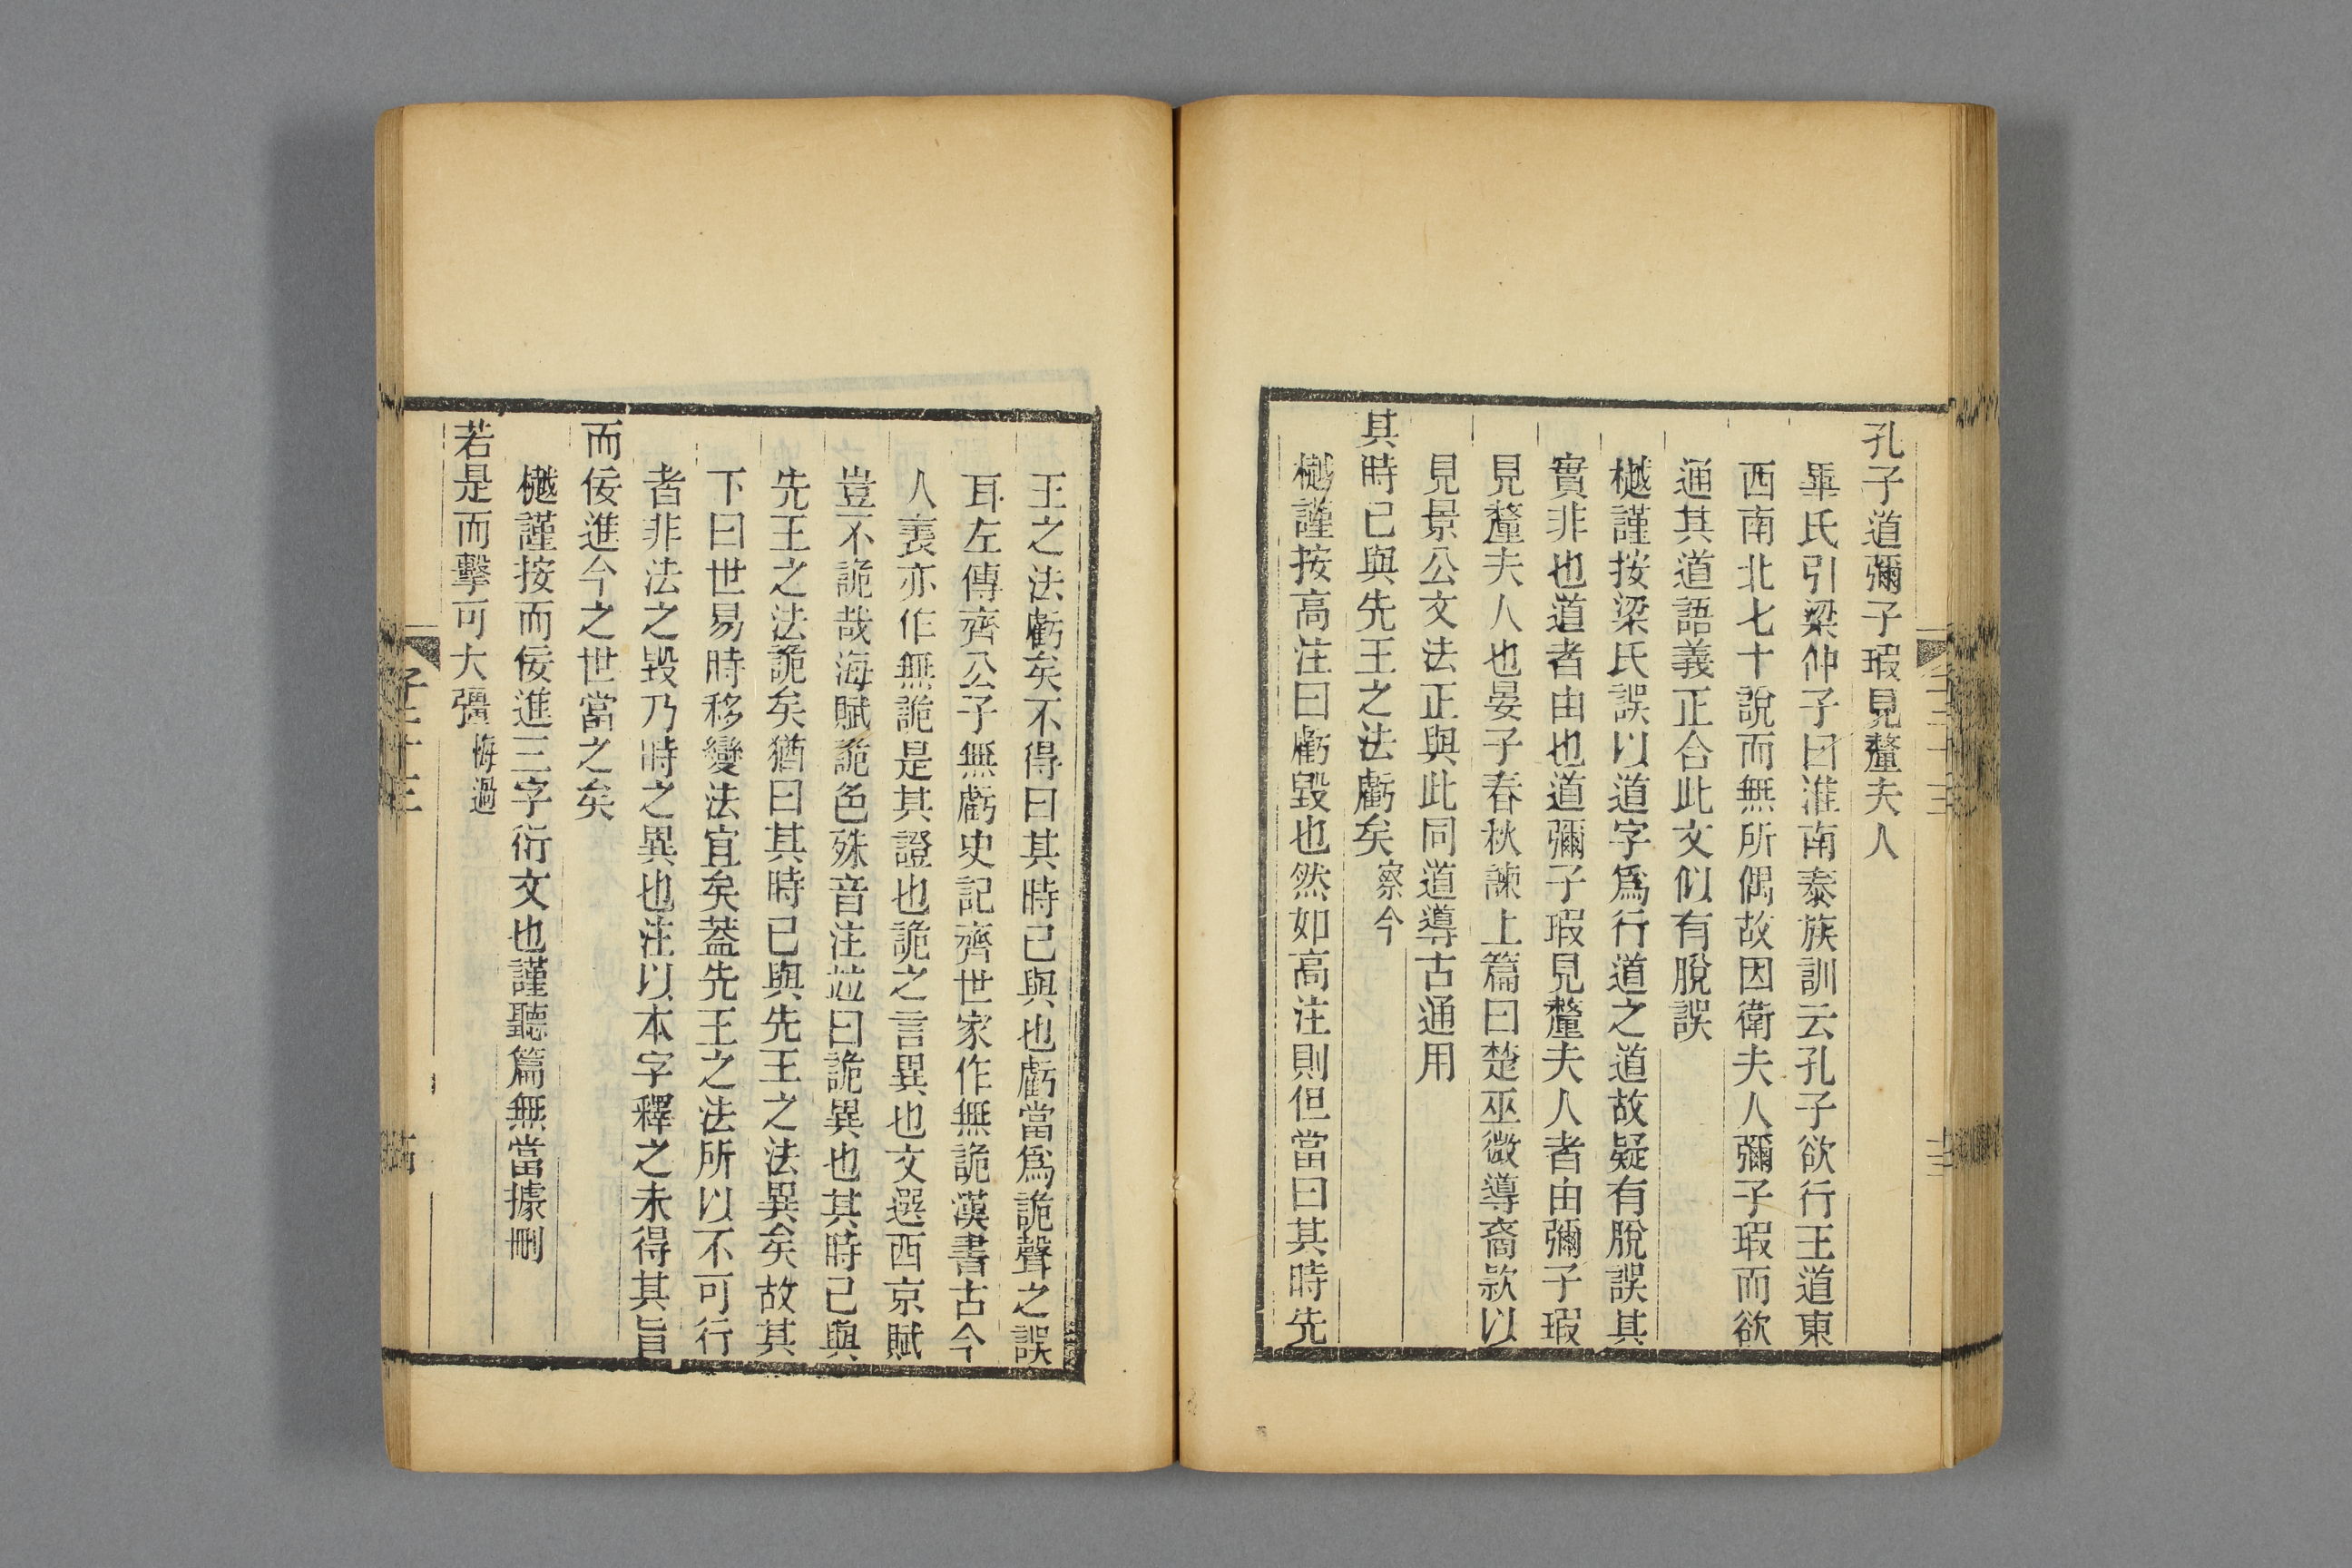 孔子道彌子瑕見釐夫人
畢氏引梁仲子曰淮南泰族訓云孔子欲行王道東
西南北七十說而無所偶故因衛夫人彌子瑕而欲
通其道語義正合此文似有脫誤
樾謹按梁氏誤以道字爲行道之道故疑有脫誤其
實非也道者由也道彌子瑕見釐夫人者由彌子瑕
見釐夫人也晏子春秋諫上篇曰楚巫微導裔款以
見景公文法正與此同道導古通用
其時已與先王之法虧矣察今
樾謹按高注曰虧毀也然如高注則但當曰其時先
王之法虧矣不得曰其時已與也虧當爲詭聲之誤
耳左傳齊公子無虧史記齊世家作無詭漢書古今
人表亦作無詭是其證也詭之言異也文選西京賦
豈不詭哉海賦詭色殊音注竝曰詭異也其時已與
先王之法詭矣猶曰其時已與先王之法異矣故其
下曰世易時移變法宜矣蓋先王之法所以不可行
者非法之毀乃時之異也注以本字釋之未得其旨
而佞進今之世當之矣
樾謹按而佞進三字衍文也謹聽篇無當據刪
若是而擊可大彊悔過
子二十三